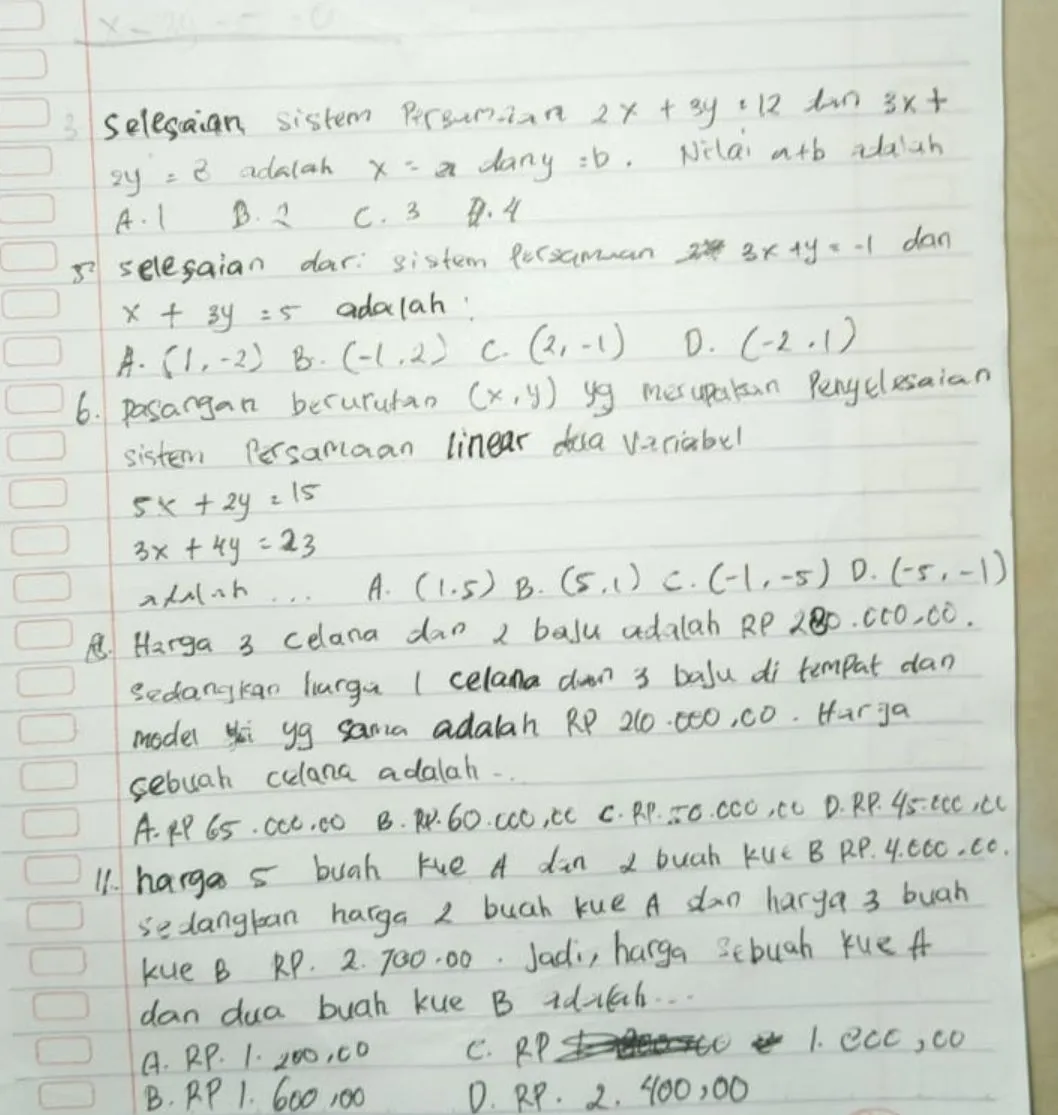 3 Selesaian sistem Persamaan 2x + 3y = 12 dan 3x +
2y = 8 adalah x = a dan y = b. Nilai a+b adalah
A. 1 B. 2 C. 3 D. 4
5. selesaian dari sistem persamaan 3x + y = -1 dan
x + 3y = 5 adalah :
A. (1, -2) B. (-1, 2) C. (2, -1) D. (-2, 1)
6. pasangan berurutan (x, y) yg merupakan Penyelesaian
sistem Persamaan linear dua Variabel
5x + 2y = 15
3x + 4y = 23
adalah ... A. (1.5) B. (5,1) C. (-1, -5) D. (-5, -1)
8. Harga 3 celana dan 2 baju adalah RP 280.000,00.
sedangkan harga 1 celana dan 3 baju di tempat dan
model yg sama adalah RP 210.000,00. Harga
sebuah celana adalah ..
A. RP 65.000,00 B. RP. 60.000,00 C. RP. 50.000,00 D. RP. 45.000,00
11. harga 5 buah kue A dan 2 buah kue B RP. 4.000,00.
sedangkan harga 2 buah kue A dan harga 3 buah
kue B RP. 2.700.00. Jadi, harga sebuah kue A
dan dua buah kue B adalah...
A. RP. 1. 200,00 C. RP 1. 800,00
B. RP 1. 600,00 D. RP. 2. 400,00